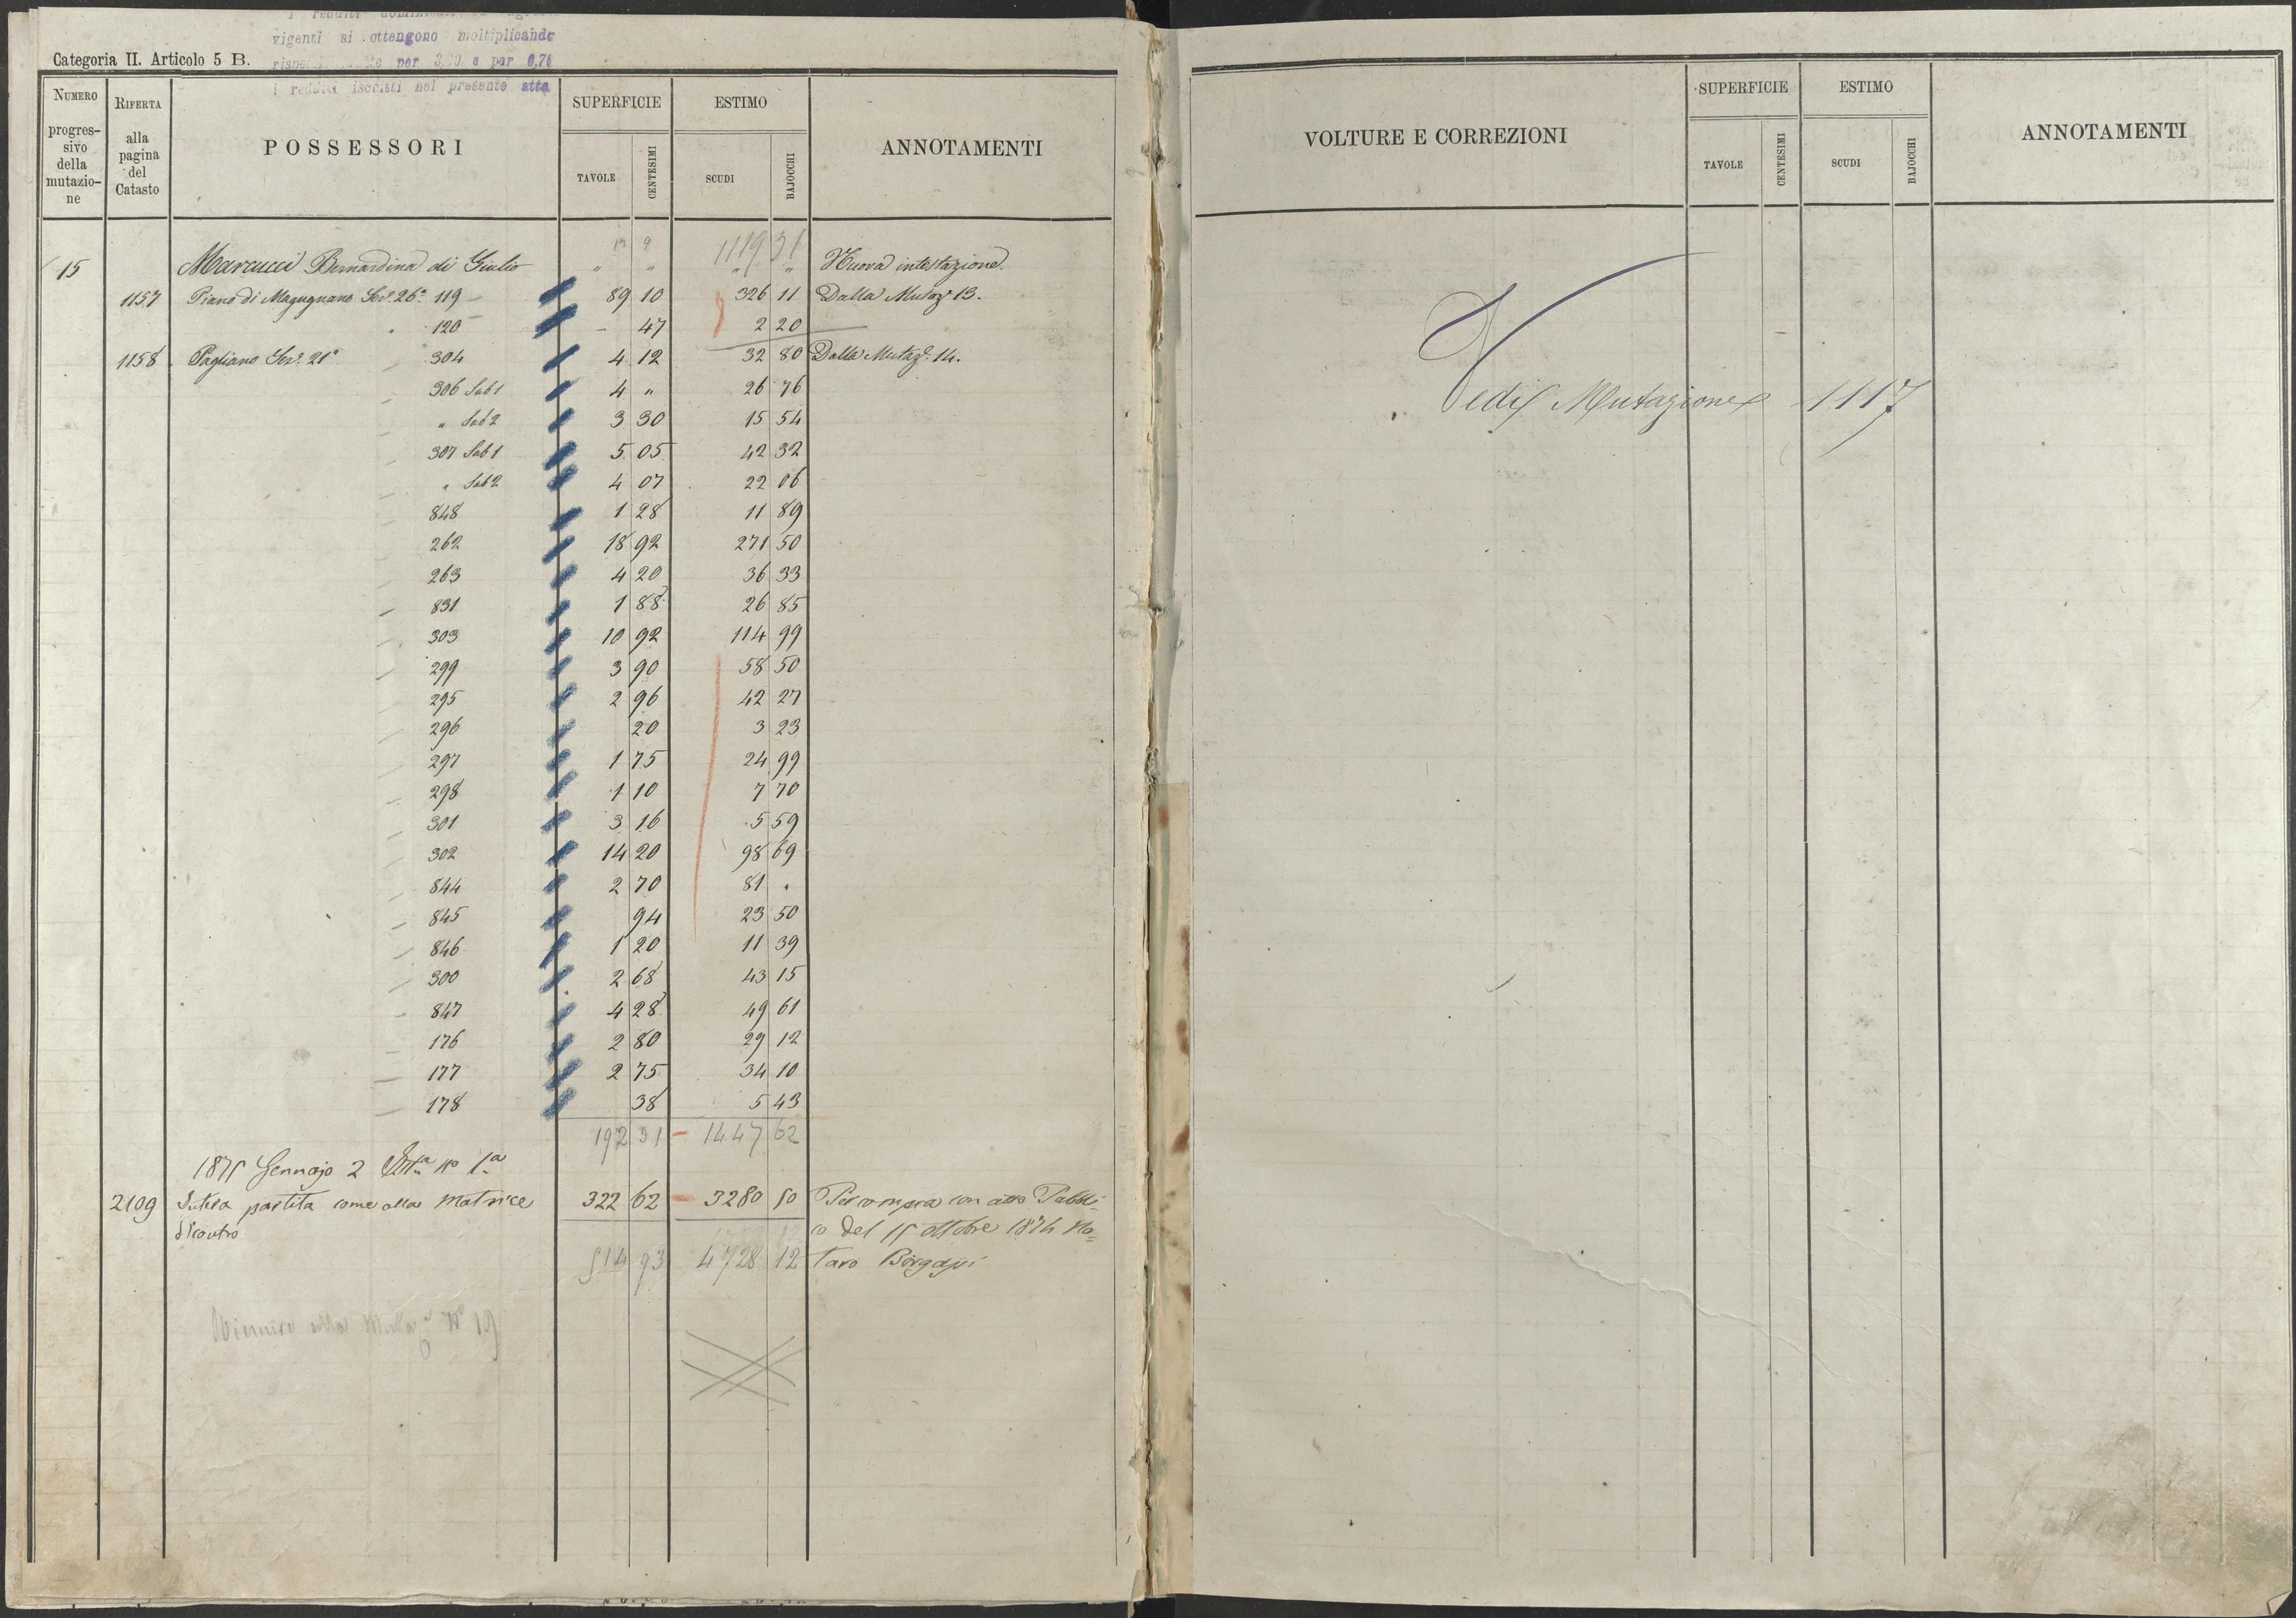 vigenti si ottengono moltiplicando
Categoria II. Articolo 5 B. per 3,20 e per 0,70
i redditi iscritti nel presente atto
NUMERO progres- sivo della mutazio- ne RIFERTA alla pagina del Catasto POSSESSORI SUPERFICIE TAVOLE CENTESIMI ESTIMO SCUDI BAJOCCHI ANNOTAMENTI
12 9 1119 31
15 Marcucci Bernardina di Giulio " " " " Nuova intestazione.
1157 Piano di Magugnano Sez. 26ª 119 89 10 326 11 Dalla Mutaz. 13.
120 - 47 2 20
1158 Pagliano Sez. 21ª 304 4 12 32 80 Dalla Mutaz. 14.
306 Sub 1 4 " 26 76
" Sub 2 3 30 15 54
307 Sub 1 5 05 42 32
" Sub 2 4 07 22 06
848 1 28 11 89
262 18 92 271 50
263 4 20 36 33
831 1 88 26 85
303 10 92 114 99
299 3 90 58 50
295 2 96 42 27
296 20 3 23
297 1 75 24 99
298 1 10 7 70
301 3 16 5 59
302 14 20 98 69
844 2 70 81 "
845 94 23 50
846 1 20 11 39
300 2 68 43 15
847 4 28 49 61
176 2 80 29 12
177 2 75 34 10
178 38 5 43
192 31 1447 62
1875 Gennajo 2 1ª
2109 Intera partita come alla Matrice 322 62 3280 50 Per compra con atto Pubbli-
di contro co del 15 Ottobre 1874 No=
514 93 4728 12 taro Borgassi
VOLTURE E CORREZIONI SUPERFICIE TAVOLE CENTESIMI ESTIMO SCUDI BAJOCCHI ANNOTAMENTI
Vedi Mutazione 1117